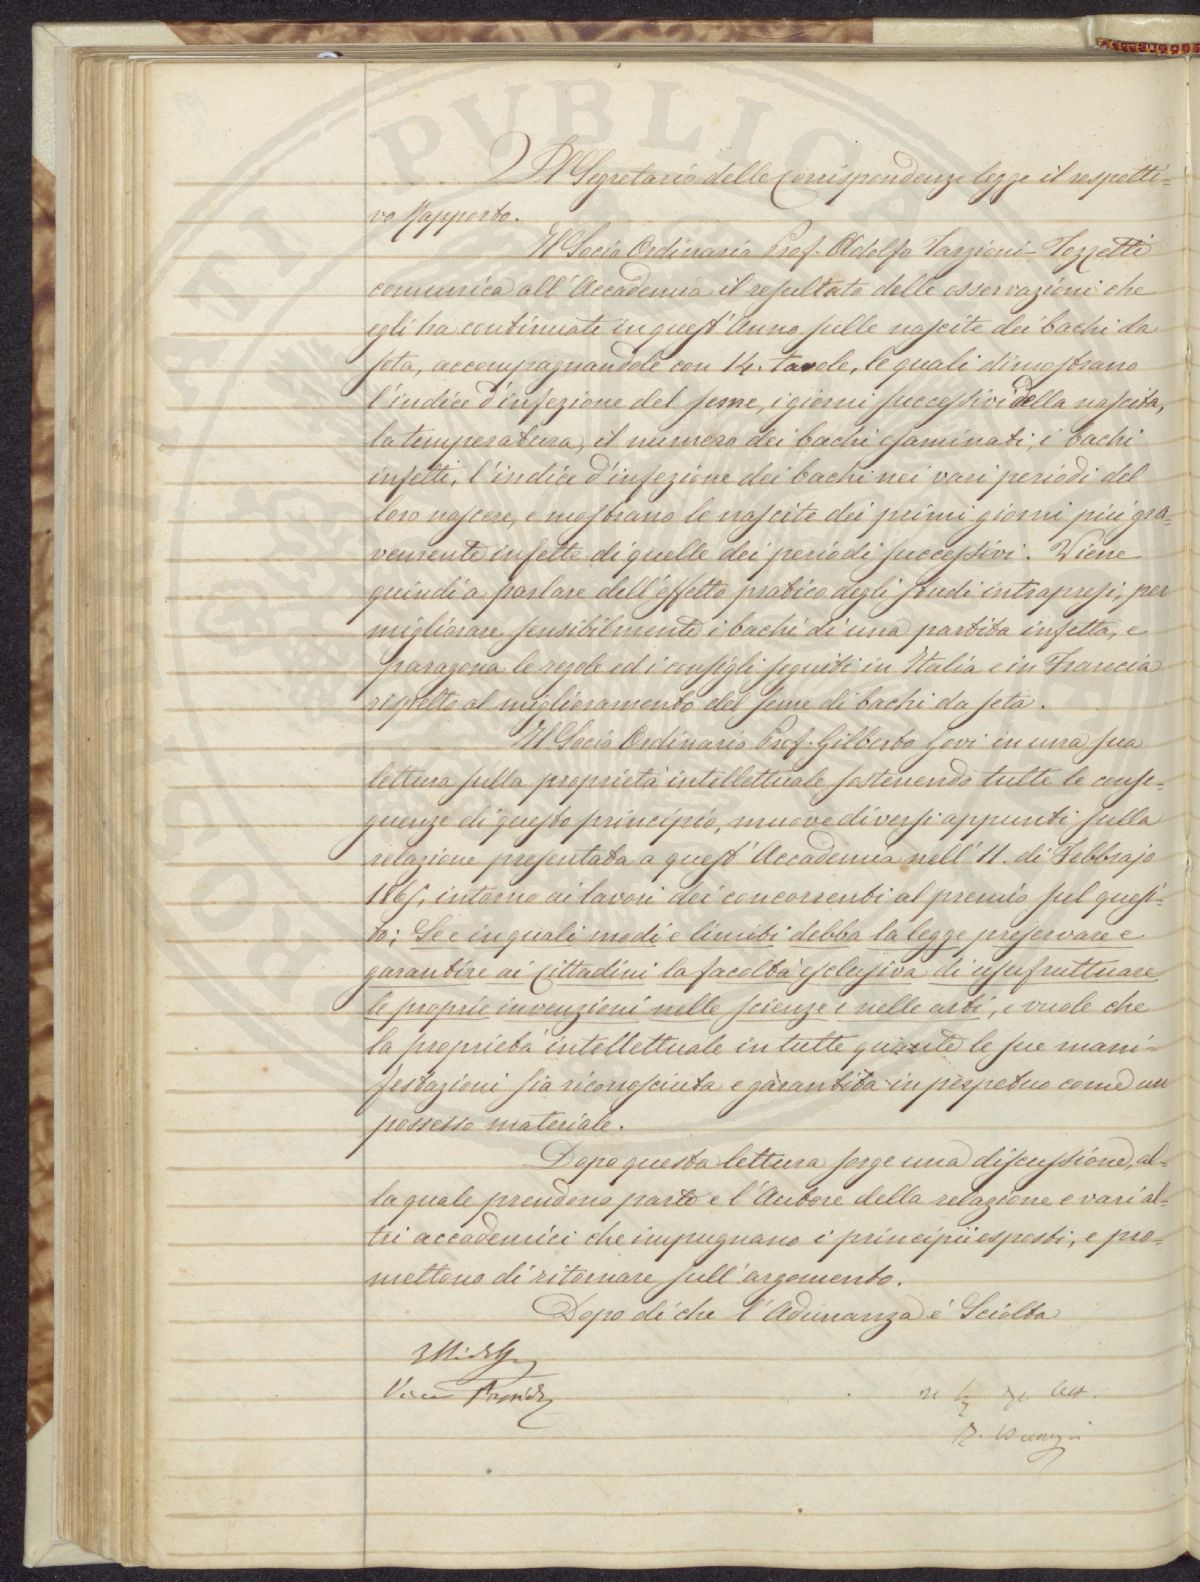 Il Segretario delle Corrispondenze legge il respetti-
vo Rapporto.
Il Socio Ordinario Prof. Adolfo Targioni-Tozzetti
comunica all'Accademia il resultato delle osservazioni che
egli ha continuate in quest'Anno sulle nascite dei bachi da
seta, accompagnandole con 14. tavole, le quali dimostrano
l'indice d'infezione del seme, i giorni successivi della nascita,
la temperatura, il numero dei bachi esaminati, i bachi
infetti, l'indice d'infezione dei bachi nei vari periodi del
loro nascere, e mostrano le nascite dei primi giorni più gra-
vemente infette di quelle dei periodi successivi. Viene
quindi a parlare dell'effetto pratico degli studi intrapresi, per
migliorare sensibilmente i bachi di una partita infetta, e
paragona le regole ed i consigli seguiti in Italia e in Francia
rispetto al miglioramento del seme di bachi da seta.
Il Socio Ordinario Prof. Gilberto Govi in una sua
lettura sulla proprietà intellettuale sostenendo tutte le conse-
guenze di questo principio, muove diversi appunti sulla
relazione presentata a quest'Accademia nell'11. di Febbrajo
intorno ai lavori dei concorrenti al premio sul quesi-
to: Se e in quali modi e limiti debba la legge preservare e
garantire ai Cittadini la facoltà esclusiva di usufruttuare
le proprie invenzioni nelle scienze e nelle arti, e vuole che
la proprietà intellettuale in tutte quante le sue mani-
festazioni sia riconosciuta e garantita in perpetuo come un
possesso materiale.
Dopo questa lettura sorge una discussione, al-
la quale prendono parte e l'Autore della relazione e vari al-
tri accademici che impugnano i principii esposti, e pro-
mettono di ritornare sull'argomento.
Dopo di che l'Adunanza è Sciolta
Vice Presid